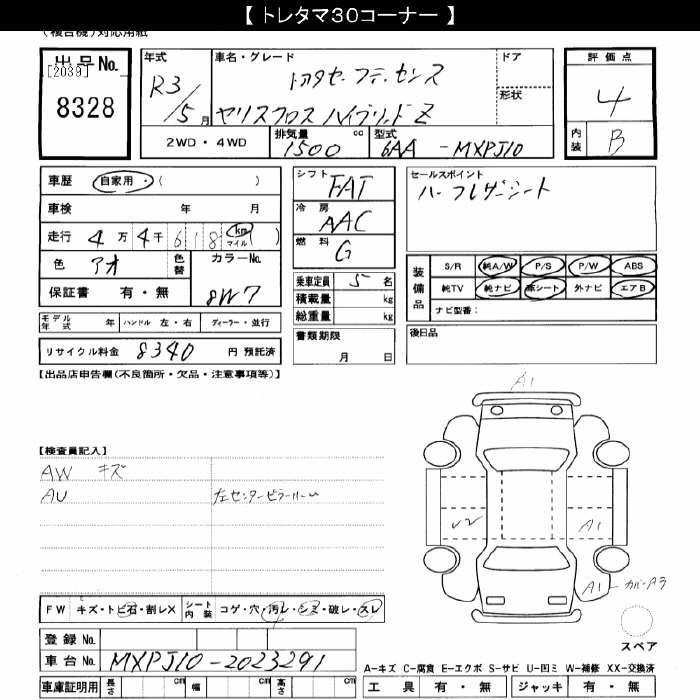 【 トレタマ30コーナー 】
(複合機)対応用紙
出品No.
[2039]
8328
年式
R3/5月
車名・グレード
トヨタセーフティセンス
ヤリスクロス ハイブリッド Z
ドア
形状
評価点
4
内装 B
2WD・4WD
排気量 1500 cc
型式 6AA - MXPJ10
車歴 自家用・( )
車検 年 月
走行 4万4千618 km マイル ( )
色 アオ
色替
カラーNo. 8W7
保証書 有・無
モデル年式 年 ハンドル 左・右 ディーラー・並行
リサイクル料金 8340 円 預託済
シフト FAT
冷房 AAC
燃料 G
乗車定員 5 名
積載量 kg
総重量 kg
書類期限
月 日
セールスポイント
ハーフレザーシート
装備品
S/R 純A/W P/S P/W ABS
純TV 純ナビ 革シート 外ナビ エアB
ナビ型番:
後日品
【出品店申告欄(不良箇所・欠品・注意事項等)】
【検査員記入】
AW キズ
AU 左センターピラールーム
A1
U2
A1
A1 - カバーAラ
スペア
FW キズ・トビ石・割レX シート内装 コゲ・穴・汚レ・シミ・破レ・スレ
登録No.
車台No. MXPJ10-2023291
車庫証明用 長さ cm 幅 cm 高さ cm
A-キズ C-腐食 E-エクボ S-サビ U-凹ミ W-補修 XX-交換済
工具 有・無 ジャッキ 有・無